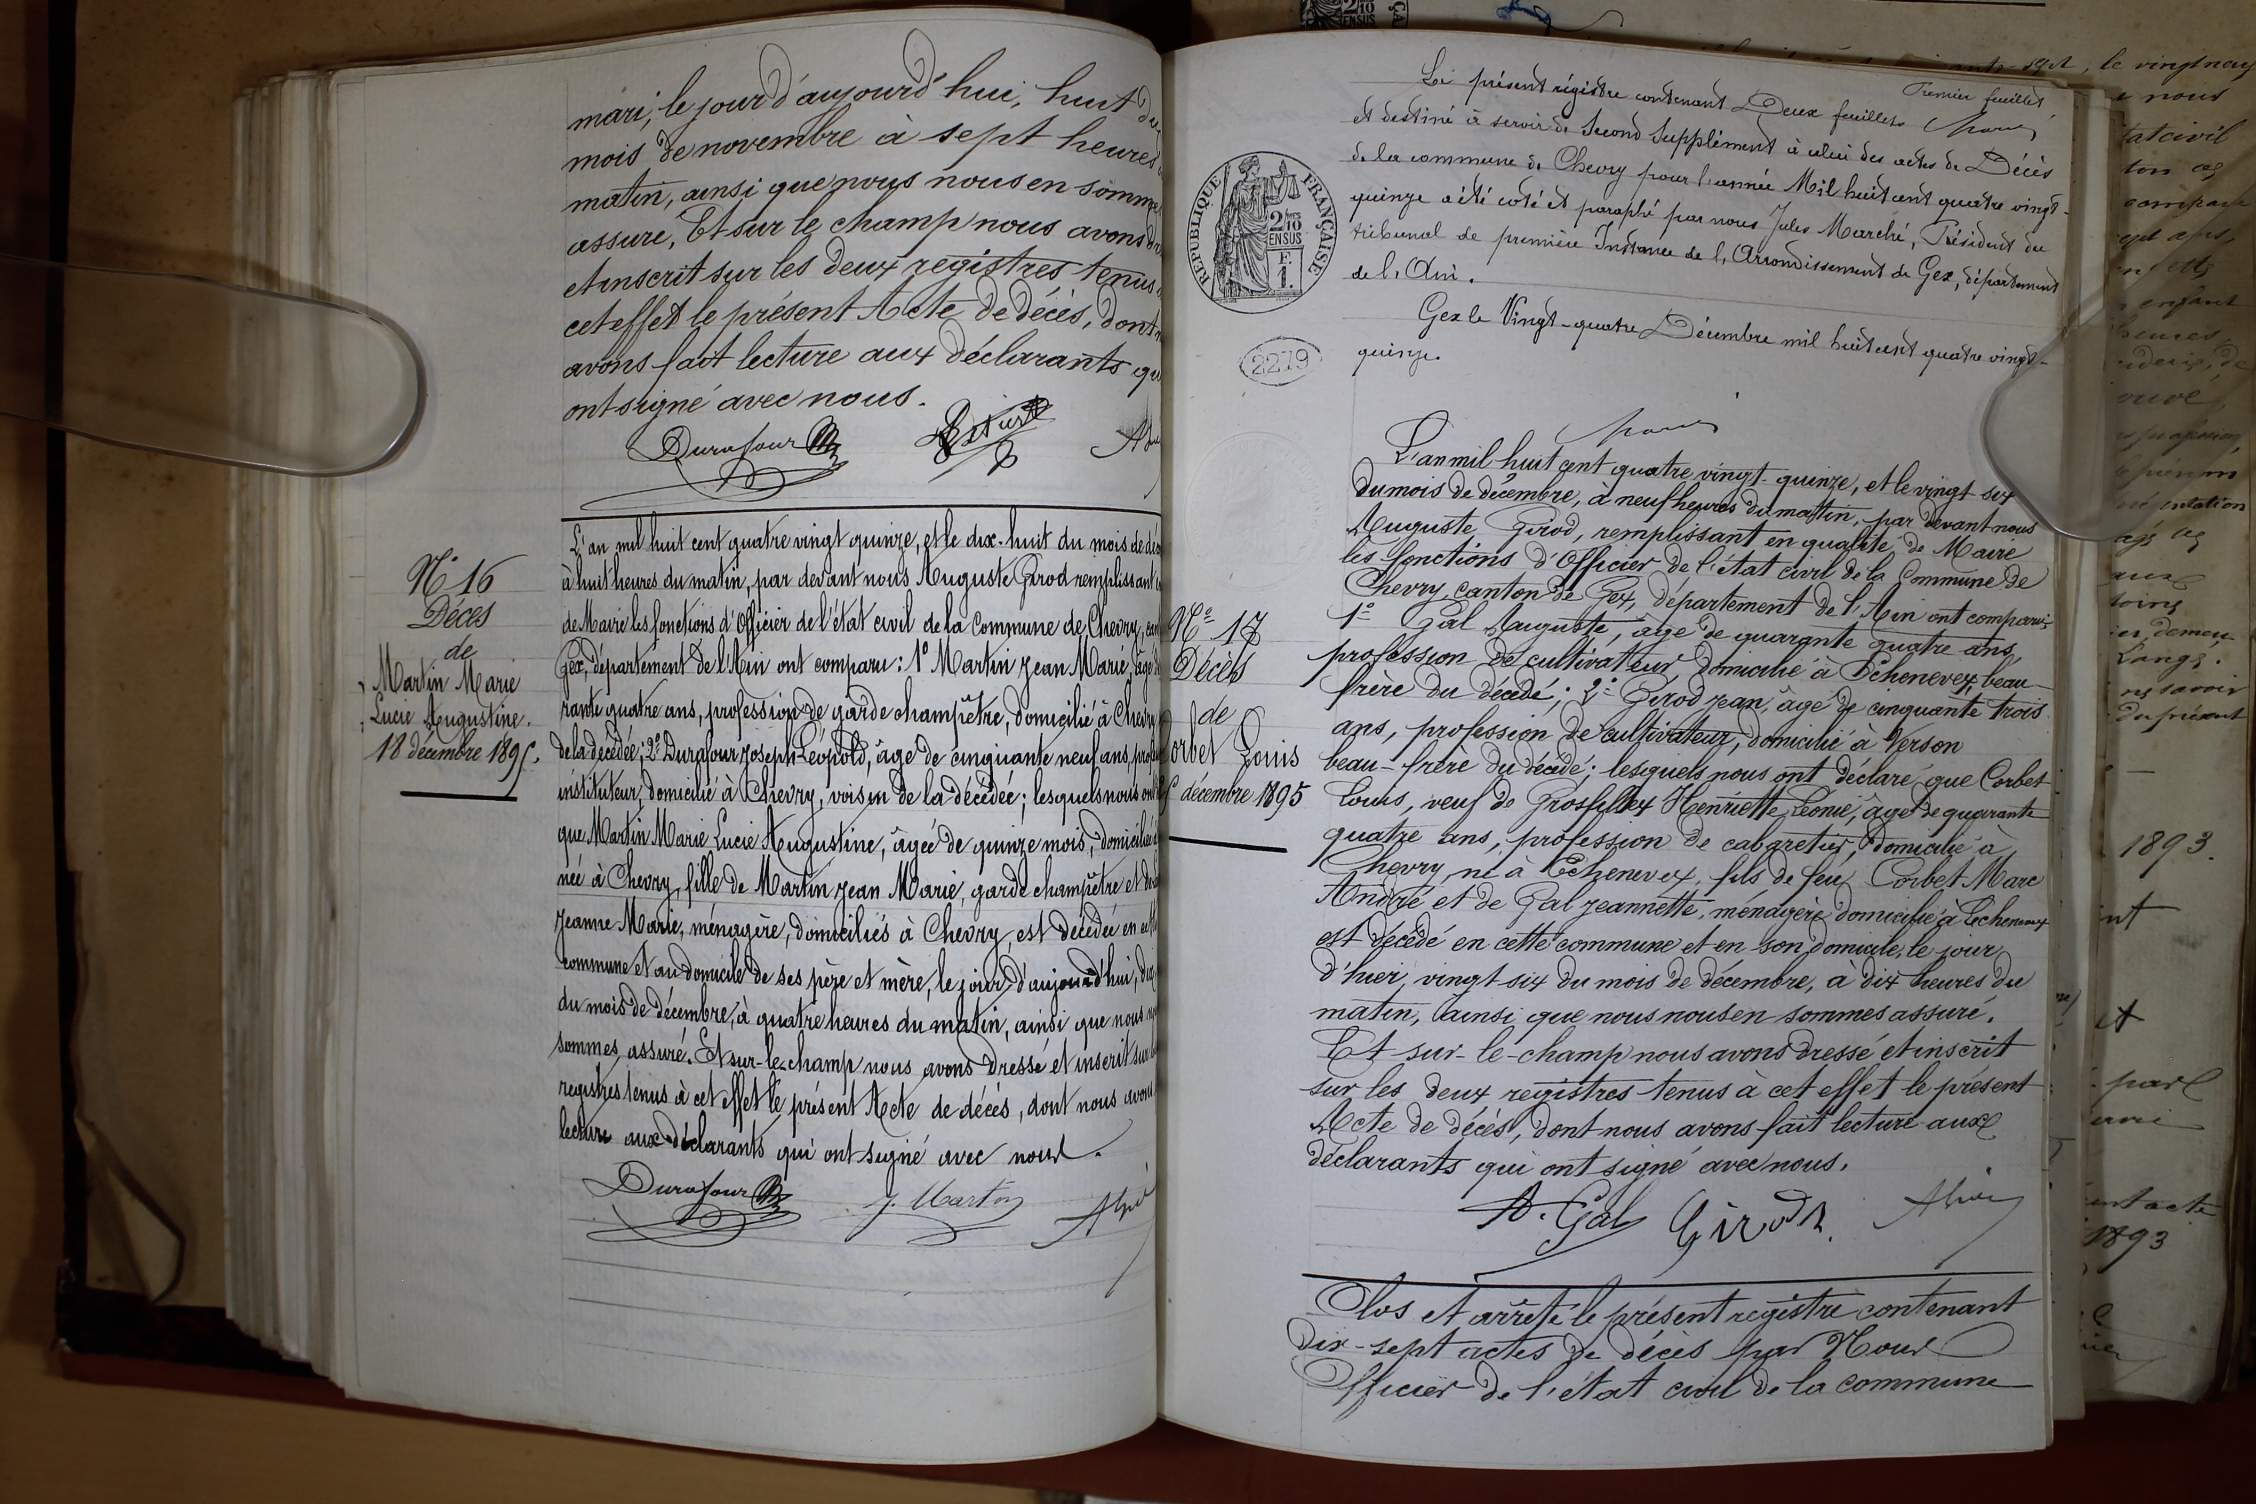 mari, le jour d'aujourd'hui, huit du
mois de novembre à sept heures
matin, ainsi que nous nous en somme
assuré, Et sur le champ nous avons
et inscrit sur les deux registres tenus
cet effet le présent Acte de décès, dont
avons fait lecture aux déclarants qu
ont signé avec nous.
Durafour
N° 16
Décès
de
Martin Marie
Lucie Augustine.
18 décembre 1895.
L'an mil huit cent quatre vingt quinze, et le dix-huit du mois de déc
à huit heures du matin, par devant nous Auguste Girod remplissant
de Maire les fonctions d'Officier de l'état civil de la Commune de Chevry, can
Gex, département de l'Ain ont comparu: 1° Martin Jean Marie, âgé
rante quatre ans, profession de garde champêtre, domicilié à Chevry
de la décédée; 2° Durafour Joseph-Léopold, âgé de cinquante neuf ans, profes
instituteur, domicilié à Chevry, voisin de la décédée; lesquels nous ont
que Martin Marie Lucie Augustine, âgée de quinze mois, domiciliée
née à Chevry, fille de Martin Jean Marie, garde champêtre et de
Jeanne Marie, ménagère, domiciliés à Chevry, est décédée en cette
commune et au domicile de ses père et mère, le jour d'aujourd'hui, dix
du mois de décembre, à quatre heures du matin, ainsi que nous
sommes assuré. Et sur-le-champ nous avons dressé et inscrit sur
registres tenus à cet effet le présent Acte de décès, dont nous avons
lecture aux déclarants qui ont signé avec nous.
Durafour J. Martin
Premier feuillet
Le présent régistre contenant Deux feuillets
et destiné à servir de Second Supplément à celui des actes de Décès
de la commune de Chevry pour l'année Mil huit cent quatre vingt-
quinze a été coté et paraphé par nous Jules Marché, Président du
tribunal de première Instance de l'Arrondissement de Gex, département
de l'Ain.
Gex le Vingt-quatre Décembre mil huit cent quatre vingt-
quinze.
RÉPUBLIQUE FRANÇAISE
2/10
EN SUS
F.
1.
2279
N° 17
Décès
de
Corbet Louis
décembre 1895
L'an mil huit cent quatre vingt-quinze, et le vingt six
du mois de décembre, à neuf heures du matin, par devant nous
Auguste Girod, remplissant en qualité de Maire
les fonctions d'Officier de l'état civil de la Commune de
Chevry, canton de Gex, département de l'Ain ont comparu:
1° Gal Auguste, âgé de quarante quatre ans,
profession de cultivateur domicilié à Echenevex, beau-
frère du décédé; 2° Girod Jean, âgé de cinquante trois
ans, profession de cultivateur, domicilié à Verson
beau-frère du décédé; lesquels nous ont déclaré que Corbet
Louis, veuf de Grosfilley Henriette Léonie, âgé de quarante
quatre ans, profession de cabaretier, domicilié à
Chevry, né à Echenevex, fils de feu Corbet Marc
André et de Gal Jeannette, ménagère domiciliée à Echenevex
est décédé en cette commune et en son domicile, le jour
d'hier, vingt-six du mois de décembre, à dix heures du
matin, ainsi que nous nous en sommes assuré.
Et sur-le-champ nous avons dressé et inscrit
sur les deux registres tenus à cet effet le présent
Acte de décès, dont nous avons fait lecture aux
déclarants qui ont signé avec nous.
A. Gal Girod
Clos et arrêté le présent registre contenant
Dix-sept actes de décès par Nous
Officier de l'état civil de la commune
le vingt neuf
nous
état civil
enfant
heures
profession
demeu
savoir
du présent
1893.
et
par
acte
1893